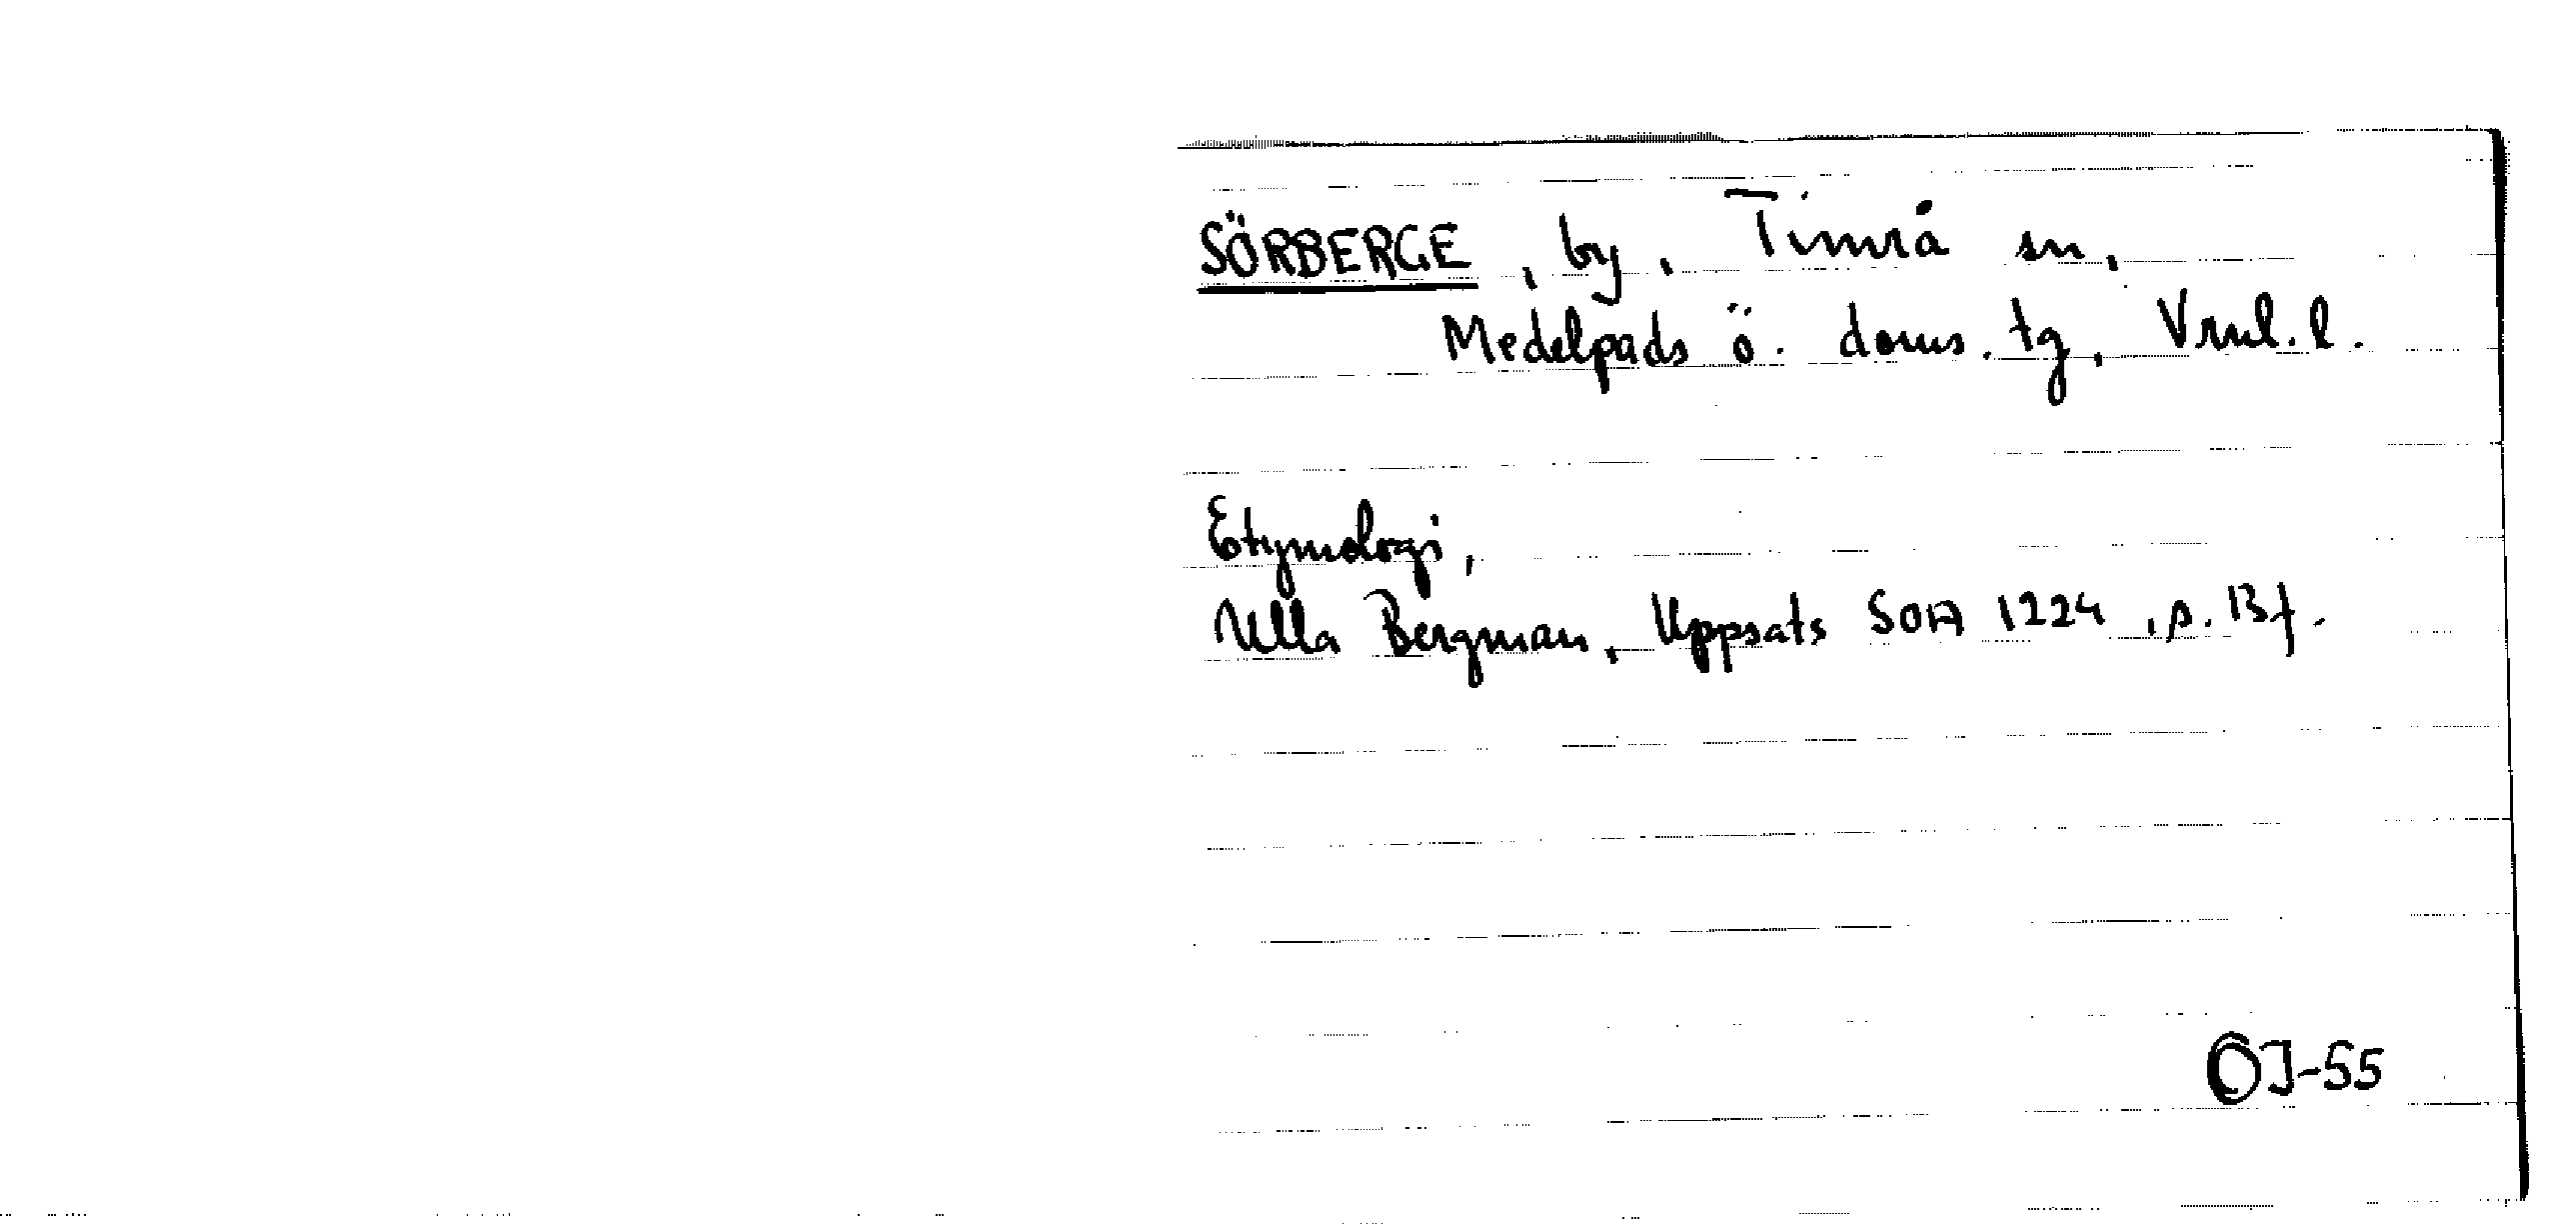 SÖRBERGE, by, Timrå sn,
Medelpads ö. doms. tg, Vrnl. l.
Etymologi,
Ulla Bergman, Uppsats SOA 1224, s. 13 f.
OJ-55